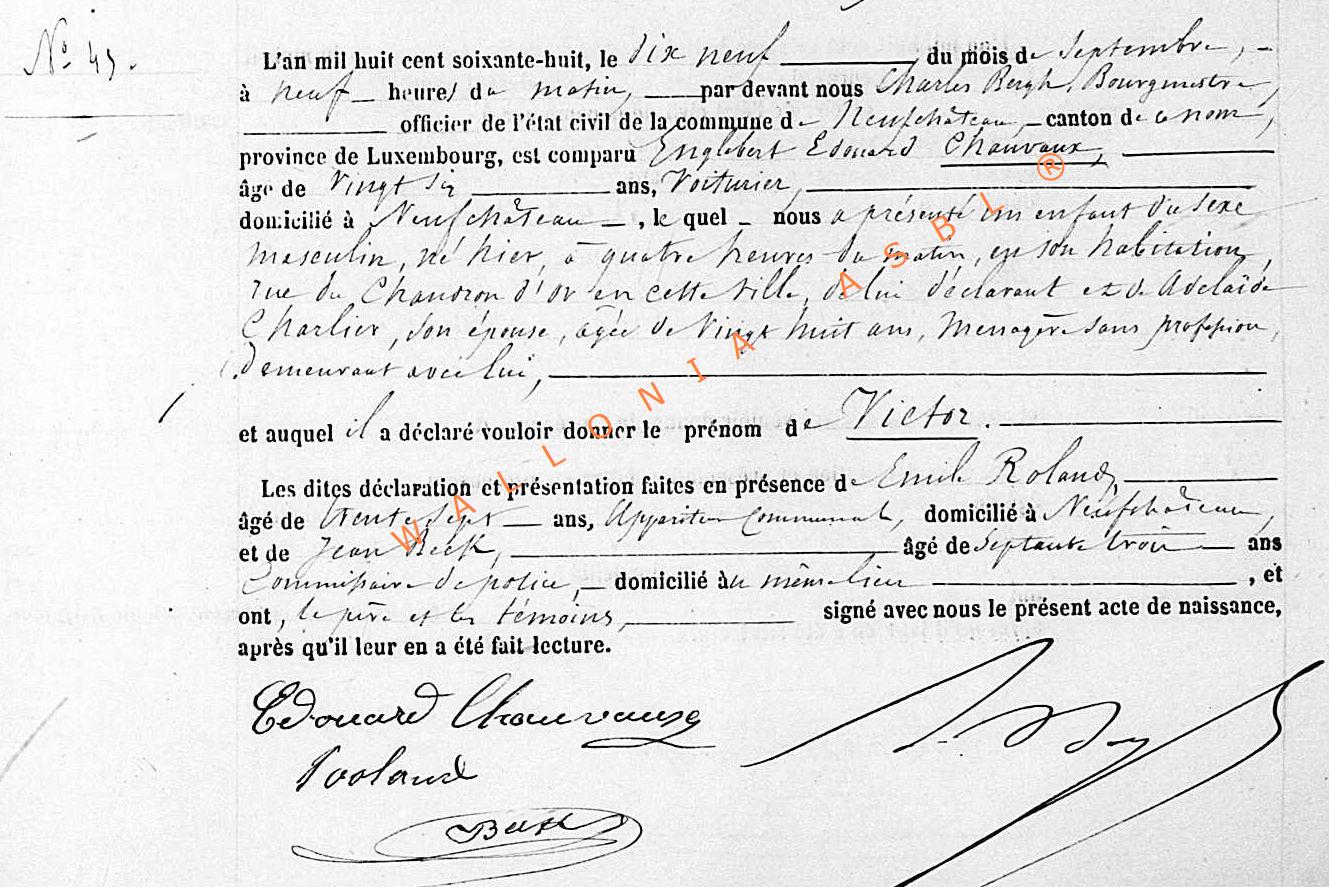 N° 45.
L'an mil huit cent soixante-huit, le dix neuf du mois de Septembre,
à neuf heures du matin, par devant nous Charles Bergh, Bourgmestre,
officier de l'état civil de la commune de Neufchâteau, canton de ce nom,
province de Luxembourg, est comparu Englebert Edouard Chauvaux,
âgé de Vingt six ans, Voiturier,
domicilié à Neufchâteau, le quel nous a présenté un enfant du sexe
masculin, né hier, à quatre heures du matin, en son habitation,
rue du Chaudron d'or en cette ville, de lui déclarant et de Adelaïde
Charlier, son épouse, agée de Vingt huit ans, Menagère sans profession,
demeurant avec lui,
et auquel il a déclaré vouloir donner le prénom de Victor.
Les dites déclaration et présentation faites en présence de Emile Roland,
âgé de trente sept ans, Appariteur Communal, domicilié à Neufchâteau,
et de Jean Beck, âgé de septante trois ans
Commissaire de police, domicilié au même lieu, et
ont, le père et les témoins, signé avec nous le présent acte de naissance,
après qu'il leur en a été fait lecture.
Edouard Chauvaux
Roland
Beck
WALLONIA ASBL ®